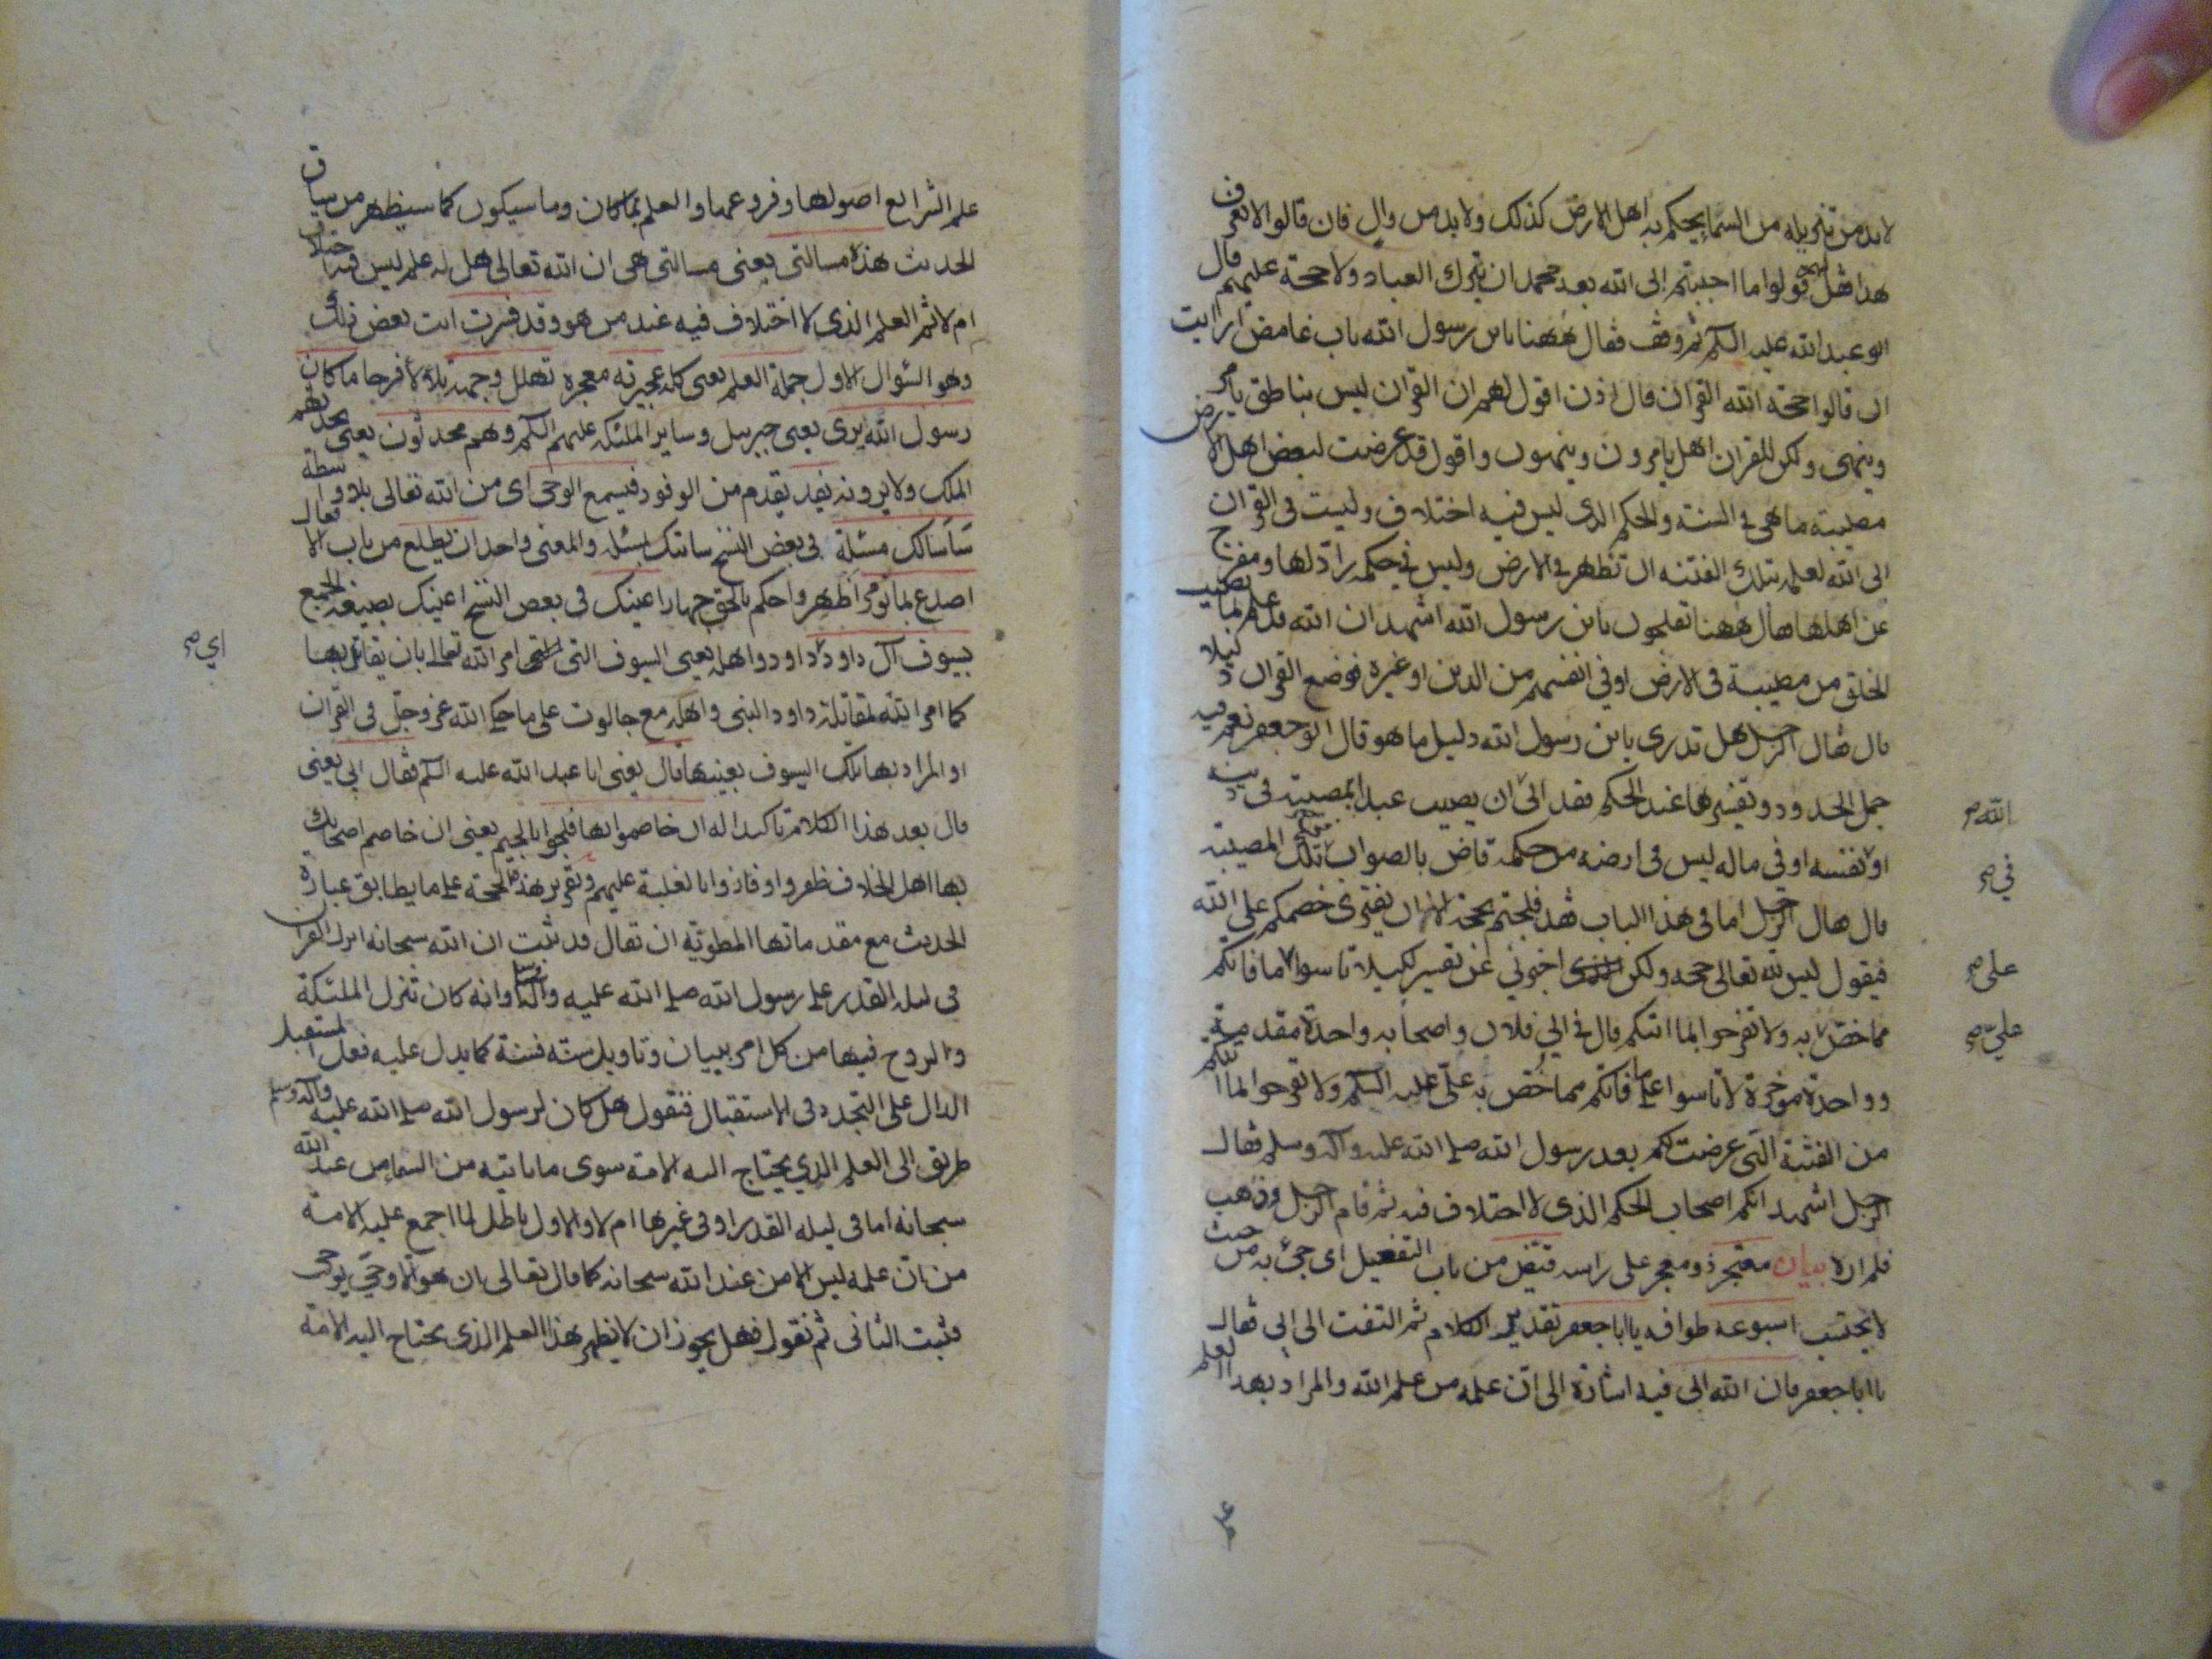 لابد من تنزيله من السماء يحكم به اهل الارض كذلك ولابد من وال فان قالوا لا نعرف
هذا فقل لهم قولوا ما احببتم ابى الله بعد محمد ان يترك العباد ولا حجة عليهم قال
ابو عبد الله عليه السلم ثم وقف فقال ههنا يابن رسول الله باب غامض ارايت
ان قالوا حجة الله القران قال اذن اقول لهم ان القران ليس بناطق يامر
وينهى ولكن للقران اهل يامرون وينهون واقول قد عرضت لبعض اهل الارض
مصيبة ما هى فى السنة والحكم الذى ليس فيه اختلاف وليست فى القران
ابى الله لعلمه بتلك الفتنة ان تظهر فى الارض وليس فى حكمه راد لها ومفرج
عن اهلها فقال ههنا تفلجون يابن رسول الله اشهد ان الله قد علم بما يصيب
الخلق من مصيبة فى الارض او فى انفسهم من الدين او غيره فوضع القران دليلا
قال فقال الرجل هل تدرى يابن رسول الله دليل ما هو قال ابو جعفر نعم فيه
جمل الحدود وتفسيرها عند الحكم فقد ابى ان يصيب عبدا بمصيبة فى دينه
او نفسه او فى ماله ليس فى ارضه من حكمه قاض بالصواب فى تلك المصيبة
قال فقال الرجل اما فى هذا الباب فقد فلجتم بحجة الا ان يفترى خصمكم على الله
فيقول ليس لله تعالى حجه ولكن اخبرنى عن تفسير لكيلا تاسوا ما فاتكم
مما خص به ولا تفرحوا بما اتيكم قال فى ابى فلان واصحابه واحدة مقدمة
وواحدة مؤخرة لا تاسوا على ما فاتكم مما خص به على عليه السلم ولا تفرحوا بما اتيكم
من الفتنة التى عرضت لكم بعد رسول الله صلى الله عليه وآله وسلم فقال
الرجل اشهد انكم اصحاب الحكم الذى لا اختلاف فيه ثم قام الرجل وذهب
فلم اره بيان معتجر ذو معجر على راسه فقيض من باب التفعيل اى جئ به من حيث
لا يحتسب اسبوعه طوافه يا ابا جعفر تقدير الكلام ثم التفت الى ابى فقال
يا ابا جعفر فان الله ابى فيه اشارة الى ان علمه من علم الله والمراد بهذا العلم
الله صح
فى صح
على صح
علي صح
علم الشرايع اصولها وفروعها والعلم بما كان وما سيكون كما سيظهر من سياق
الحديث هذه مسالتى يعنى مسالتى هى ان الله تعالى هل له علم ليس فيه اختلاف
ام لا ثم العلم الذى لا اختلاف فيه عند من هو وقد فسرت انت بعض ذلك
وهو السوال الاول جملة العلم يعنى كله عجيرته معجره تهلل وجهه تلالا فرحا ما كان
رسول الله يرى يعنى جبرييل وساير الملئكه عليهم السلم وهم محدثون يعنى يحدثهم
الملك ولا يرونه يفد يقدم من الوفود فيسمع الوحى اى من الله تعالى بلا واسطة
ساسالك مسئلة فى بعض النسخ ساتيك بمسئله والمعنى واحد ان يطلع من باب الافعال
اصدع بما تومر اظهر واحكم بالحق جهارا عينك فى بعض النسخ اعينك بصيغة الجمع
بسيوف آل داود داود واهله يعنى السيوف التى امر الله تعالى بان يقاتل بها
كما امر الله لمقاتلة داود النبى واهله مع جالوت على ما حكى الله عز وجل فى القران
او المراد بها تلك السيوف بعينها قال يعنى ابا عبد الله عليه السلم فقال ابى يعنى
قال بعد هذا الكلام تاكيدا له ان خاصموا بها فلجوا بالجيم يعنى ان خاصم اصحابك
بها اهل الخلاف ظفروا وفازوا بالغلبة عليهم وتقرير هذه الحجة على ما يطابق عبارة
الحديث مع مقدماتها المطوية ان تقال قد ثبت ان الله سبحانه انزل القران
فى ليلة القدر على رسول الله صلى الله عليه وآله وسلم وانه كان تنزل الملئكة
والروح فيها من كل امر ببيان وتاويل سنة فسنة كما يدل عليه فعل المستقبل
الدال على التجدد فى الاستقبال فنقول هل كان لرسول الله صلى الله عليه وآله وسلم
طريق الى العلم الذى يحتاج اليه الامة سوى ما ياتيه من السماء من عند الله
سبحانه اما فى ليلة القدر او فى غيرها ام لا والاول باطل لما اجمع عليه الامة
من ان علمه ليس الا من عند الله سبحانه كما قال تعالى ان هو الا وحى يوحى
فثبت الثانى ثم نقول فهل يجوز ان لا يظهر هذا العلم الذى يحتاج اليه الامة
اي صح